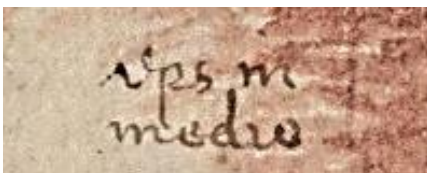 xps in
medio